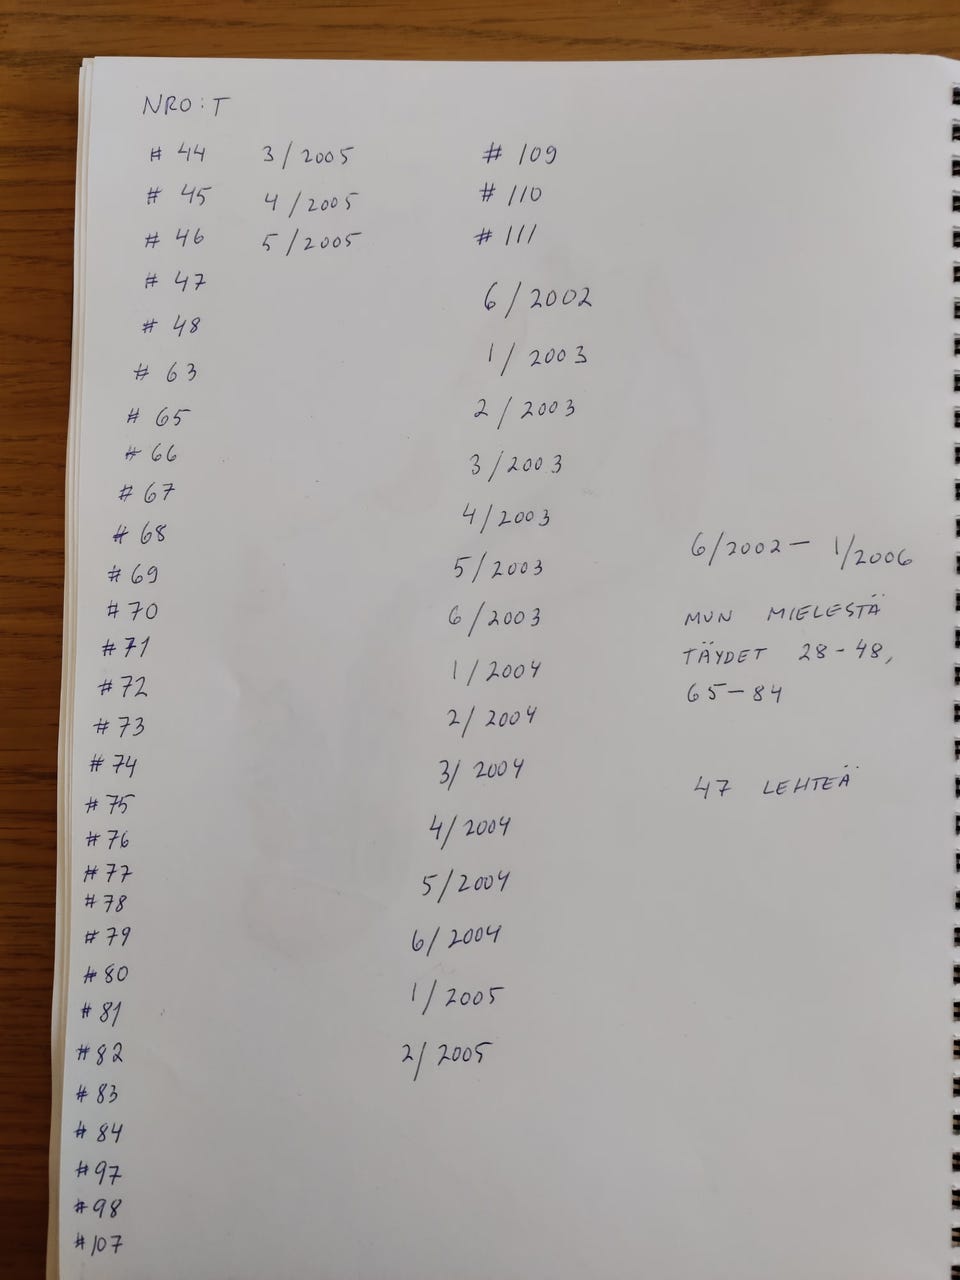 NRO:T
# 44 3/2005
# 45 4/2005
# 46 5/2005
# 47
# 48
# 63
# 65
# 66
# 67
# 68
# 69
# 70
# 71
# 72
# 73
# 74
# 75
# 76
# 77
# 78
# 79
# 80
# 81
# 82
# 83
# 84
# 97
# 98
# 107
# 109
# 110
# 111
6/2002
1/2003
2/2003
3/2003
4/2003
5/2003
6/2003
1/2004
2/2004
3/2004
4/2004
5/2004
6/2004
1/2005
2/2005
6/2002 – 1/2006
MUN MIELESTÄ
TÄYDET 28-48,
65-84
47 LEHTEÄ